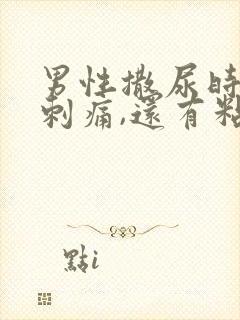 男性撒尿時
刺痛,還有粘
點i